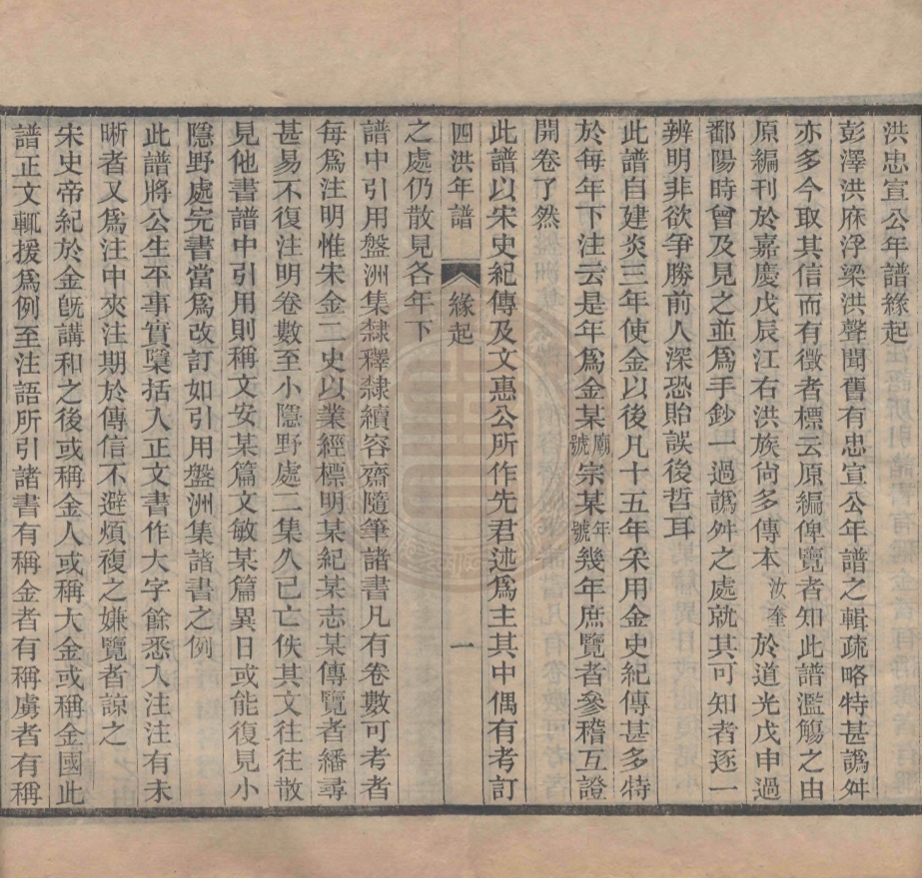 洪忠宣公年譜緣起
彭澤洪庥浮梁洪聲聞舊有忠宣公年譜之輯疏略特甚譌舛
亦多今取其信而有徵者標云原編俾覽者知此譜濫觴之由
原編刊於嘉慶戊辰江右洪族尙多傳本汝奎於道光戊申過
鄱陽時曾及見之並爲手鈔一過譌舛之處就其可知者逐一
辨明非欲爭勝前人深恐貽誤後哲耳
此譜自建炎三年使金以後凡十五年采用金史紀傳甚多特
於每年下注云是年爲金某廟號宗某年號幾年庶覽者參稽互證
開卷了然
此譜以宋史紀傳及文惠公所作先君述爲主其中偶有考訂
四洪年譜 緣起 一
之處仍散見各年下
譜中引用盤洲集隸釋隸續容齋隨筆諸書凡有卷數可考者
每爲注明惟宋金二史以業經標明某紀某志某傳覽者繙尋
甚易不復注明卷數至小隱野處二集久已亡佚其文往往散
見他書譜中引用則稱文安某篇文敏某篇異日或能復見小
隱野處完書當爲改訂如引用盤洲集諸書之例
此譜將公生平事實櫽括入正文書作大字餘悉入注注有未
晰者又爲注中夾注期於傳信不避煩複之嫌覽者諒之
宋史帝紀於金旣講和之後或稱金人或稱大金或稱金國此
譜正文輒援爲例至注語所引諸書有稱金者有稱虜者有稱